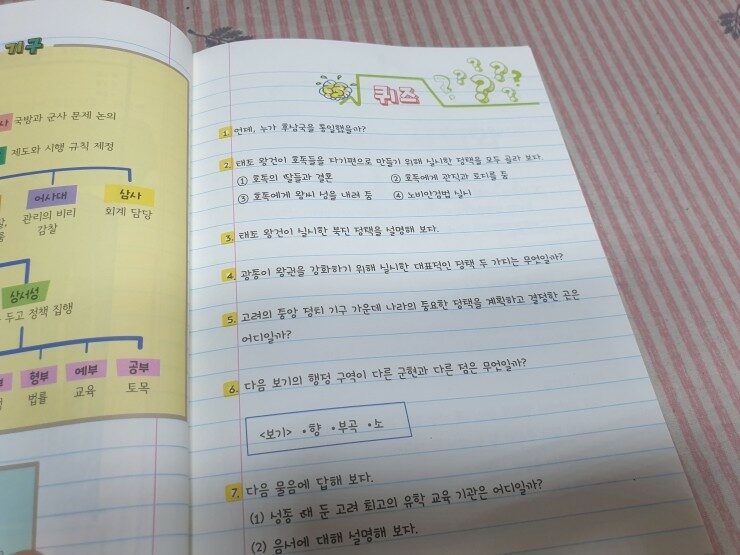 기구
사
국방과 군사 문제 논의
제도와 시행 규칙 제정
어사대
삼사
관리의 비리
감찰
회계 담당
상서성
두고 정책 집행
형부
예부
공부
법률
교육
토목
퀴즈
1. 언제, 누가 후삼국을 통일했을까?
2. 태조 왕건이 호족들을 자기편으로 만들기 위해 실시한 정책을 모두 골라 보자.
① 호족의 딸들과 결혼 ② 호족에게 관직과 토지를 줌
③ 호족에게 왕씨 성을 내려 줌 ④ 노비안검법 실시
3. 태조 왕건이 실시한 북진 정책을 설명해 보자.
4. 광종이 왕권을 강화하기 위해 실시한 대표적인 정책 두 가지는 무엇일까?
5. 고려의 중앙 정치 기구 가운데 나라의 중요한 정책을 계획하고 결정한 곳은
어디일까?
6. 다음 보기의 행정 구역이 다른 군현과 다른 점은 무엇일까?
<보기> •향 •부곡 •소
7. 다음 물음에 답해 보자.
(1) 성종 때 둔 고려 최고의 유학 교육 기관은 어디일까?
(2) 음서에 대해 설명해 보자.